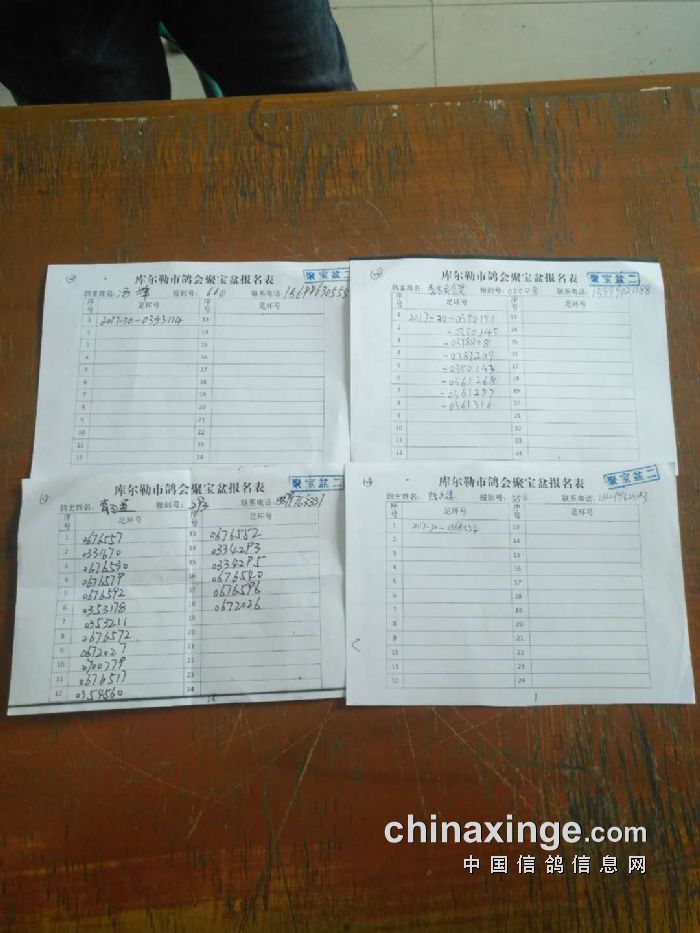 库尔勒市鸽会聚宝盆报名表
聚宝盆二
鸽主姓名: 棚号: 660 联系电话:
序号 足环号 序号 足环号
1 2017-30-0343114 13
2 14
3 15
4 16
5 17
6 18
7 19
8 20
9 21
10 22
11 23
12 24
库尔勒市鸽会聚宝盆报名表
聚宝盆二
鸽主姓名: 棚号: 联系电话:
序号 足环号 序号 足环号
1 2017-30-0350151 13
2 -0350145 14
3 15
4 -0387209 16
5 -0350143 17
6 -0361268 18
7 -0361257 19
8 -0361316 20
9 21
10 22
11 23
12 24
库尔勒市鸽会聚宝盆报名表
聚宝盆二
鸽主姓名: 棚号: 293 联系电话:
序号 足环号 序号 足环号
1 0676557 13 0676552
2 0331670 14 0334293
3 0676530 15 0334295
4 0676579 16 0676540
5 0676592 17 0676596
6 0353178 18 0672026
7 0353211 19
8 0676572 20
9 0672027 21
10 0700779 22
11 0676517 23
12 0354560 24
库尔勒市鸽会聚宝盆报名表
聚宝盆二
鸽主姓名: 棚号: 联系电话:
序号 足环号 序号 足环号
1 2017-30- 13
2 14
3 15
4 16
5 17
6 18
7 19
8 20
9 21
10 22
11 23
12 24
1
chinaxinge.com
中国信鸽信息网